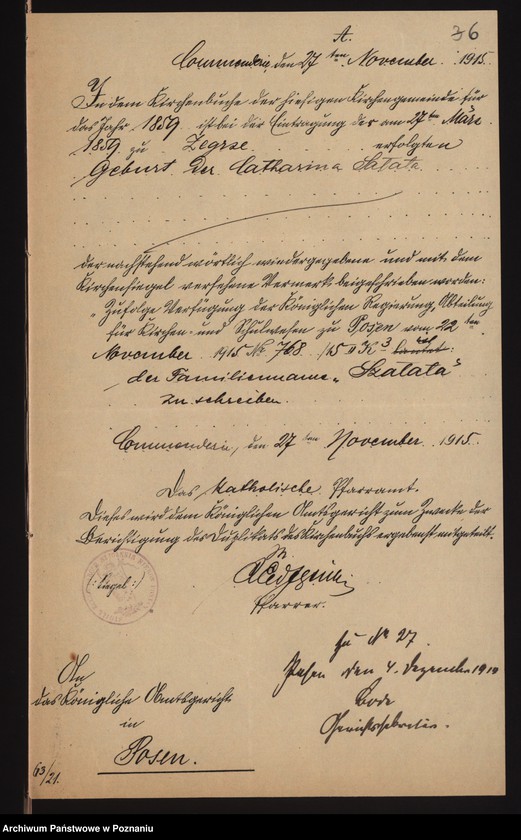 A.
36
Commenderie, den 27ten November 1915.
In dem Kirchenbuche der hiesigen Kirchengemeinde für
das Jahr 1859 ist bei der Eintragung der am 27ten März
1859 zu Zegrze erfolgten
Geburt der Catharina Satata
der nachstehend wörtlich wiedergegebene und mit dem
Kirchensiegel versehene Vermerk beigeschrieben worden:
"Zufolge Verfügung der Königlichen Regierung, Abteilung
für Kirchen- und Schulwesen zu Posen vom 22ten
November 1915 No 768/15 II K3 ist
der Familienname "Szatata"
zu schreiben.
Commenderie, den 27ten November 1915.
Das Katholische Pfarramt.
Dieses wird dem Königlichen Amtsgericht zum Zwecke der
Berichtigung des Duplikats des Kirchenbuchs ergebenst mitgeteilt.
(: Siegel :)
Pfarrer.
zu No 27.
Posen den 4. Dezember 191
Bode
Gerichtssekretär.
An
das Königliche Amtsgericht
in
Posen.
63/21.
Archiwum Państwowe w Poznaniu